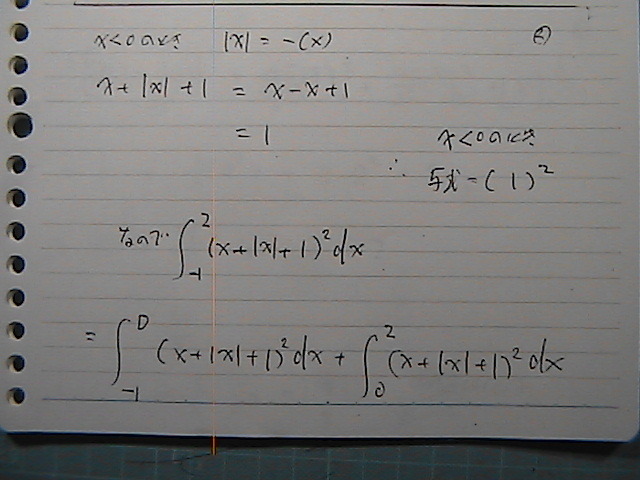 x<0のとき |x| = -(x) ②
x + |x| + 1 = x - x + 1
= 1
x<0のとき
∴ 与式 = ( 1 )²
なので ∫_{-1}^{2} (x+|x|+1)² dx
= ∫_{-1}^{0} (x+|x|+1)² dx + ∫_{0}^{2} (x+|x|+1)² dx